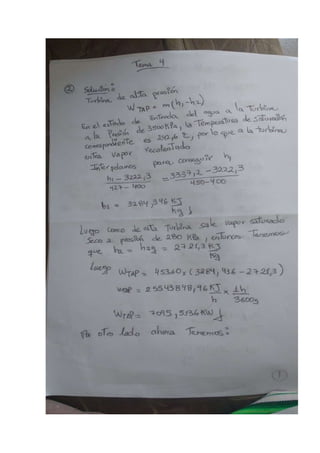 Tema 4
② Solución:
Turbina de alta presión
WTAP = m(h1-h2)
En el estado de Entrada del agua a la turbina
a la Presión de 3500KPa, la Temperatura de Saturación
correspondiente es 242,6 ℃, por lo que a la turbina
entra vapor recalentado.
Interpolamos para conseguir h1
h1 - 3222,3 / 427 - 400 = 3337,2 - 3222,3 / 450-400
h1 = 3284,346 KJ/kg
Luego como de alta turbina sale vapor saturado
seco a presión de 280 KPa, entonces Tenemos
que h2 = h2g = 2721,3 KJ/Kg
Luego WTAP = 45360x (3284,436 - 2721,3)
WTAP = 25543848,96 KJ/h x 1h/3600s
WTAP = 7095,5136 KW
Por otro lado ahora Tenemos:
1